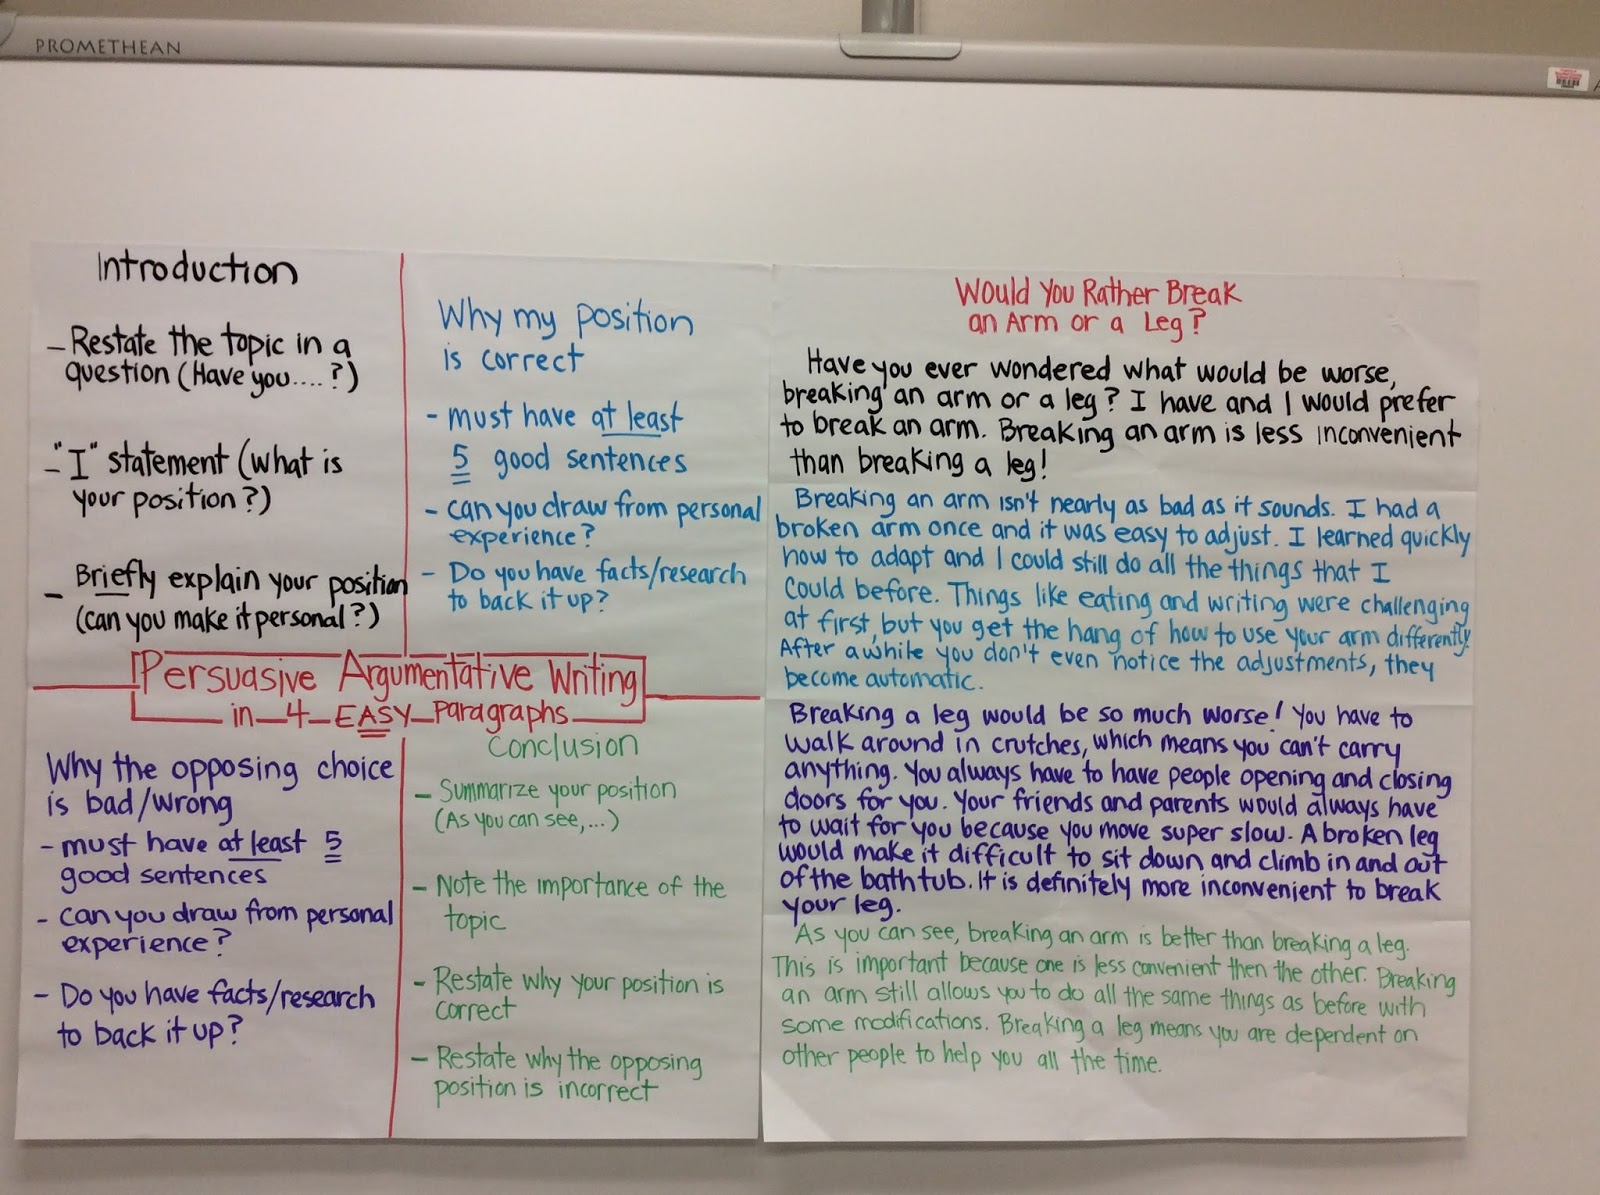 PROMETHEAN
Introduction
- Restate the topic in a
question (Have you....?)
- "I" statement (what is
your position?)
- Briefly explain your position
(can you make it personal?)
Why my position
is correct
- must have at least
5 good sentences
- can you draw from personal
experience?
- Do you have facts/research
to back it up?
Persuasive Argumentative Writing
in 4 EASY Paragraphs
Why the opposing choice
is bad/wrong
- must have at least 5
good sentences
- can you draw from personal
experience?
- Do you have facts/research
to back it up?
Conclusion
- Summarize your position
(As you can see,...)
- Note the importance of the
topic
- Restate why your position is
correct
- Restate why the opposing
position is incorrect
Would You Rather Break
an Arm or a Leg?
Have you ever wondered what would be worse,
breaking an arm or a leg? I have and I would prefer
to break an arm. Breaking an arm is less inconvenient
than breaking a leg!
Breaking an arm isn't nearly as bad as it sounds. I had a
broken arm once and it was easy to adjust. I learned quickly
how to adapt and I could still do all the things that I
could before. Things like eating and writing were challenging
at first, but you get the hang of how to use your arm differently.
After awhile you don't even notice the adjustments, they
become automatic.
Breaking a leg would be so much worse! You have to
walk around in crutches, which means you can't carry
anything. You always have to have people opening and closing
doors for you. Your friends and parents would always have
to wait for you because you move super slow. A broken leg
would make it difficult to sit down and climb in and out
of the bathtub. It is definitely more inconvenient to break
your leg.
As you can see, breaking an arm is better than breaking a leg.
This is important because one is less convenient then the other. Breaking
an arm still allows you to do all the same things as before with
some modifications. Breaking a leg means you are dependent on
other people to help you all the time.